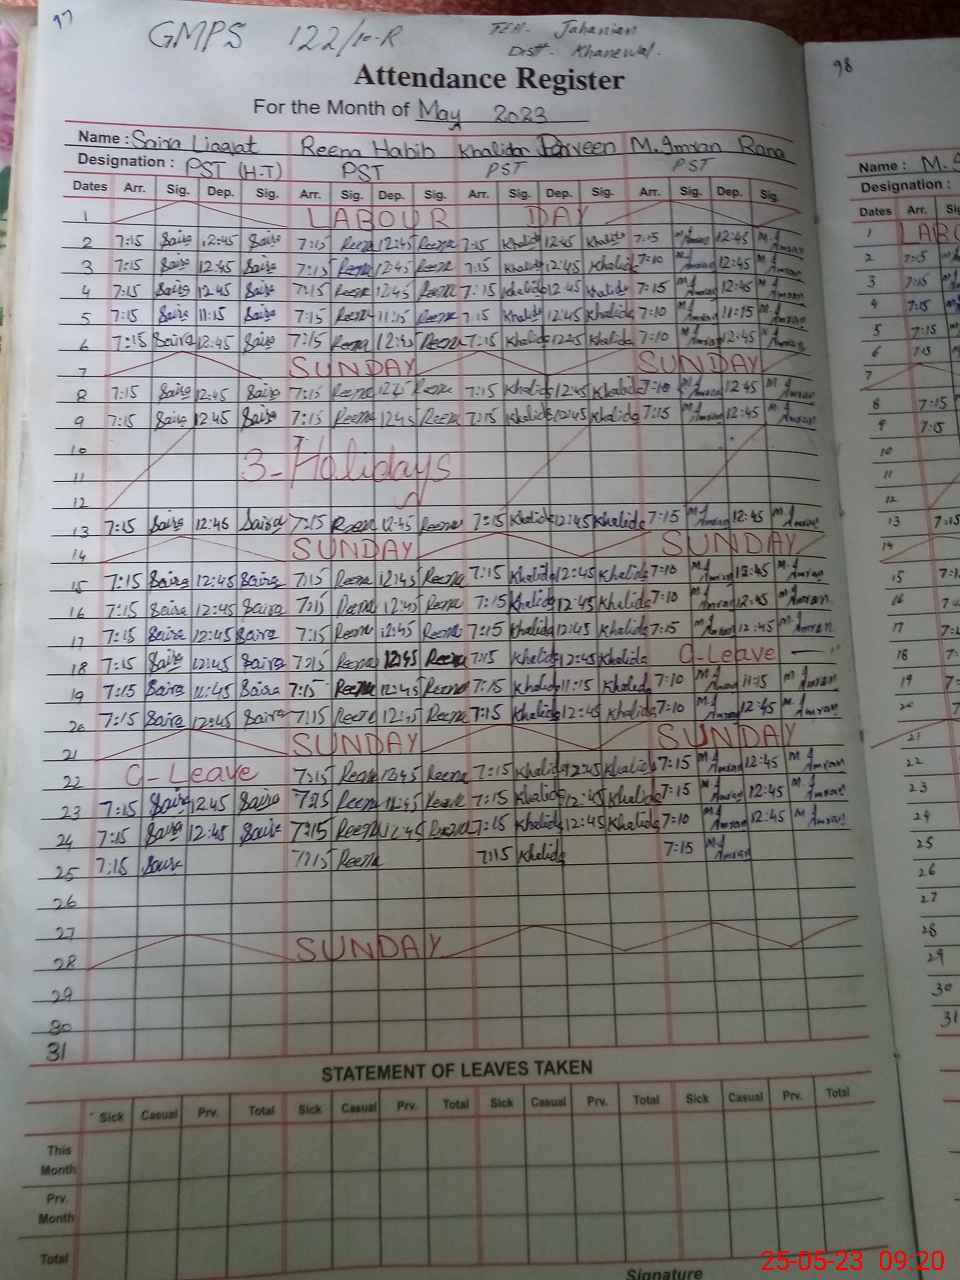 97
GMPS 122/10-R
TEH. Jahanian
Distt. Khanewal.
98
Attendance Register
For the Month of May 2023
Name : Saira Liaqat Reena Habib Khalida Parveen M. Imran Rana
Designation : PST (H.T) PST PST PST
Dates Arr. Sig. Dep. Sig. Arr. Sig. Dep. Sig. Arr. Sig. Dep. Sig. Arr. Sig. Dep. Sig.
1 LABOUR DAY
2 7:15 Saira 12:45 Saira 7:15 Reena 12:45 Reena 7:15 Khalida 12:45 Khalida 7:15 M. Imran 12:45 M. Imran
3 7:15 Saira 12:45 Saira 7:15 Reena 12:45 Reena 7:15 Khalida 12:45 Khalida 7:10 M. Imran 12:45 M. Imran
4 7:15 Saira 12:45 Saira 7:15 Reena 12:45 Reena 7:15 Khalida 12:45 Khalida 7:15 M. Imran 12:45 M. Imran
5 7:15 Saira 11:15 Saira 7:15 Reena 11:15 Reena 7:15 Khalida 12:45 Khalida 7:10 M. Imran 11:15 M. Imran
6 7:15 Saira 12:45 Saira 7:15 Reena 12:45 Reena 7:15 Khalida 12:45 Khalida 7:10 M. Imran 12:45 M. Imran
7 SUNDAY SUNDAY
8 7:15 Saira 12:45 Saira 7:15 Reena 12:45 Reena 7:15 Khalida 12:45 Khalida 7:10 M. Imran 12:45 M. Imran
9 7:15 Saira 12:45 Saira 7:15 Reena 12:45 Reena 7:15 Khalida 12:45 Khalida 7:15 M. Imran 12:45 M. Imran
10
11 3-Holidays
12
13 7:15 Saira 12:45 Saira 7:15 Reena 12:45 Reena 7:15 Khalida 12:45 Khalida 7:15 M. Imran 12:45 M. Imran
14 SUNDAY SUNDAY
15 7:15 Saira 12:45 Saira 7:15 Reena 12:45 Reena 7:15 Khalida 12:45 Khalida 7:10 M. Imran 12:45 M. Imran
16 7:15 Saira 12:45 Saira 7:15 Reena 12:45 Reena 7:15 Khalida 12:45 Khalida 7:10 M. Imran 12:45 M. Imran
17 7:15 Saira 12:45 Saira 7:15 Reena 12:45 Reena 7:15 Khalida 12:45 Khalida 7:15 M. Imran 12:45 M. Imran
18 7:15 Saira 12:45 Saira 7:15 Reena 12:45 Reena 7:15 Khalida 12:45 Khalida C-Leave
19 7:15 Saira 11:45 Saira 7:15 Reena 12:45 Reena 7:15 Khalida 11:15 Khalida 7:10 M. Imran 11:15 M. Imran
20 7:15 Saira 12:45 Saira 7:15 Reena 12:45 Reena 7:15 Khalida 12:45 Khalida 7:10 M. Imran 12:45 M. Imran
21 SUNDAY SUNDAY
22 C-Leave 7:15 Reena 12:45 Reena 7:15 Khalida 12:45 Khalida 7:15 M. Imran 12:45 M. Imran
23 7:15 Saira 12:45 Saira 7:15 Reena 12:45 Reena 7:15 Khalida 12:45 Khalida 7:15 M. Imran 12:45 M. Imran
24 7:15 Saira 12:45 Saira 7:15 Reena 12:45 Reena 7:15 Khalida 12:45 Khalida 7:10 M. Imran 12:45 M. Imran
25 7:15 Saira 7:15 Reena 7:15 Khalida 7:15 M. Imran
26
27
28 SUNDAY
29
30
31
STATEMENT OF LEAVES TAKEN
Sick Casual Prv. Total Sick Casual Prv. Total Sick Casual Prv. Total Sick Casual Prv. Total
This
Month
Prv.
Month
Total
Signature
Name : M.
Designation :
Dates Arr.
1
2 7:15
3 7:15
4 7:15
5 7:15
6 7:15
7
8 7:15
9 7:15
10
11
12
13 7:15
14
15
16
17
18
19
20
21
22
23
24
25
26
27
28
29
30
31
25-05-23 09:20